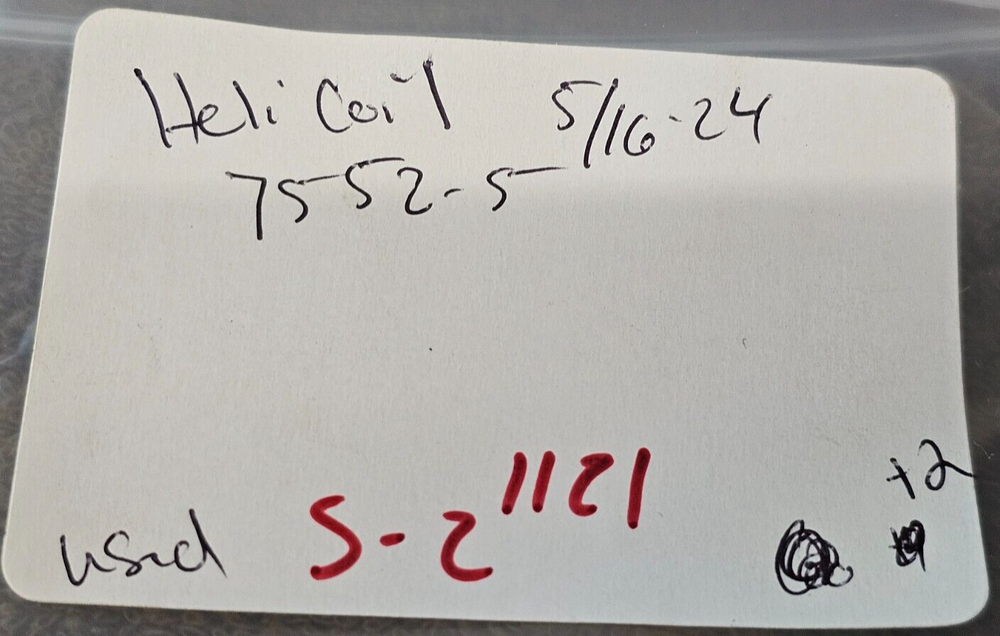 Heli Coil 5/16-24
7552-5
+2
used S-2 1121